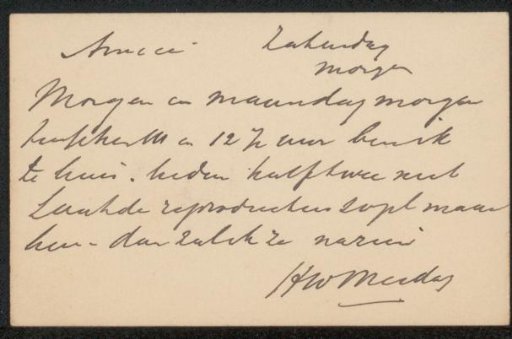 Amice Zaterdag
morgen
Morgen en maandag morgen
tusschen 11 en 12 ½ uur ben ik
te huis. heden half twee niet
Laat de reproducties s.v.pl. maar
hier - dan zal ik ze nazien
HWMesdag